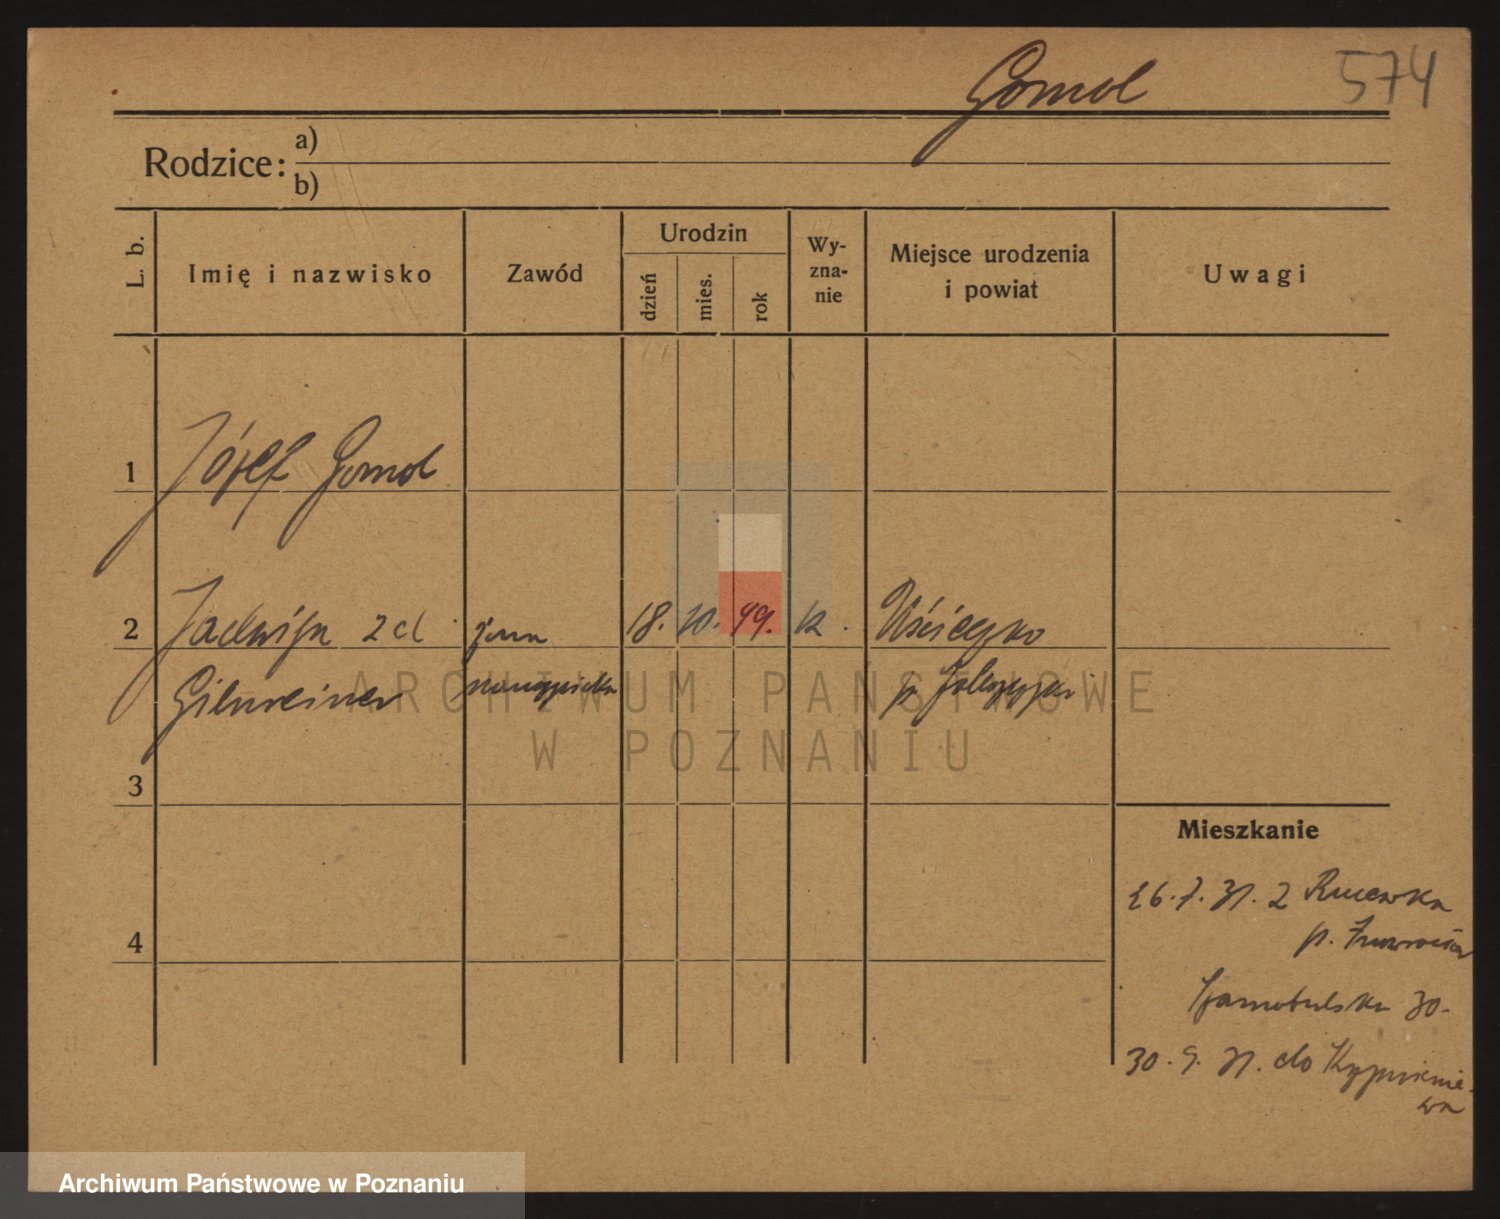 Gomol
574
Rodzice:
a)
b)
L. b.
Imię i nazwisko
Zawód
Urodzin
dzień
mies.
rok
Wy-
zna-
nie
Miejsce urodzenia
i powiat
Uwagi
1 Józef Gomol
2 Jadwiga z d żona 18. 10. 99. k. Uścięcko
3
4
Mieszkanie
26.7.31. z
p.
Szamotulska 30.
30.9.31. do
ARCHIWUM PAŃSTWOWE
W POZNANIU
Archiwum Państwowe w Poznaniu